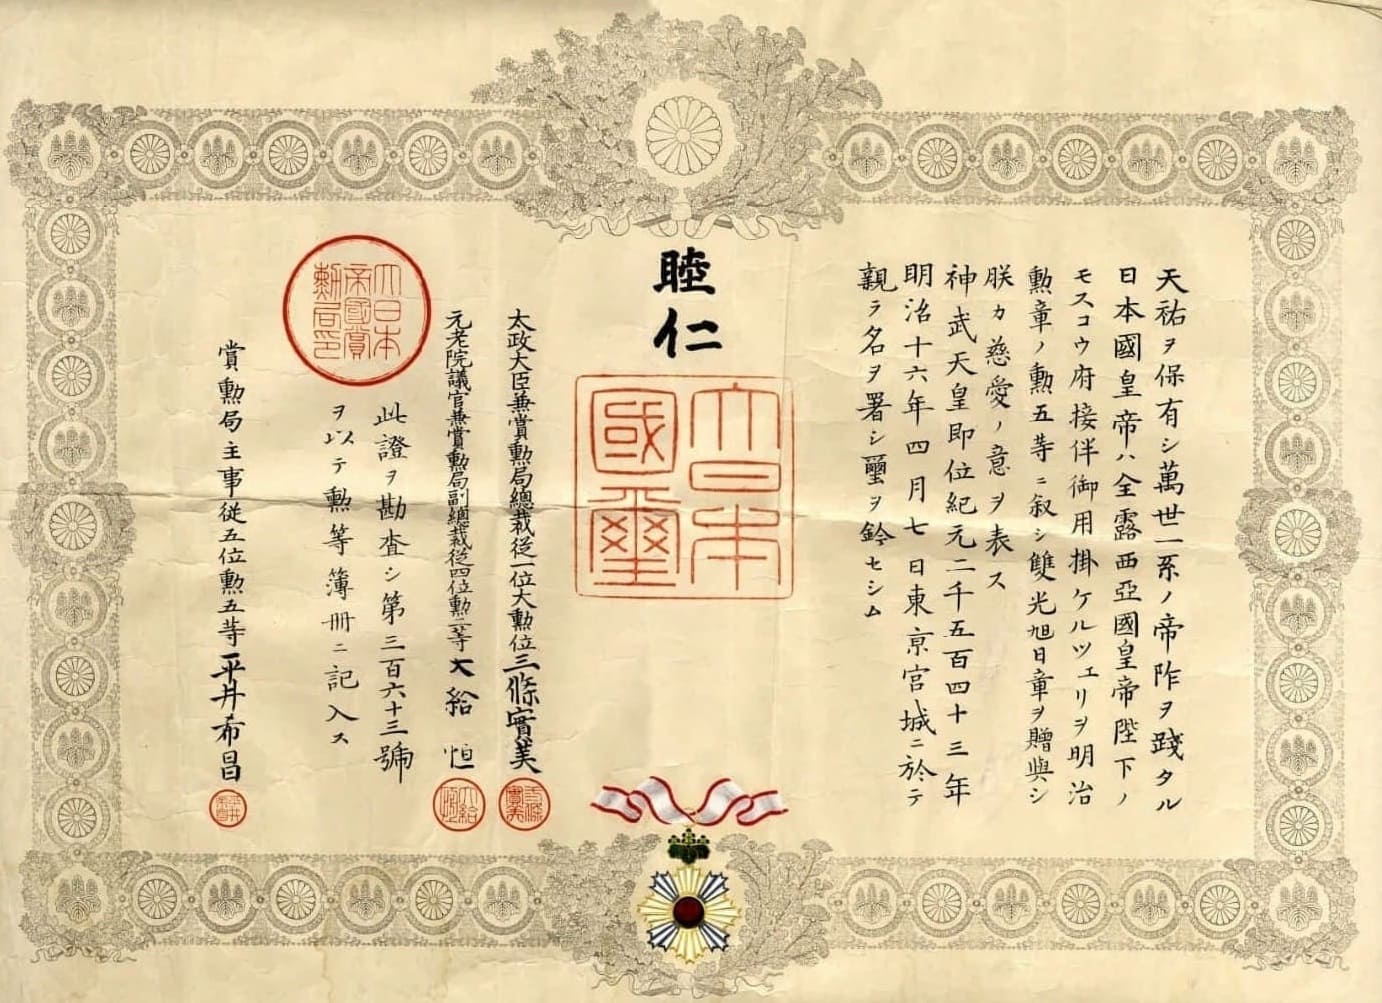 天祐ヲ保有シ萬世一系ノ帝阼ヲ踐タル
日本國皇帝ハ全露西亞國皇帝陛下ノ
モスコウ府接伴御用掛ケルツェリヲ明治
勲章ノ勲五等ニ叙シ雙光旭日章ヲ贈與シ
朕カ慈愛ノ意ヲ表ス
神武天皇即位紀元二千五百四十三年
明治十六年四月七日東京宮城ニ於テ
親ラ名ヲ署シ璽ヲ鈐セシム
睦仁
大日本
國璽
太政大臣兼賞勲局總裁従一位大勲位三條實美
三條
實美
元老院議官兼賞勲局副總裁従四位勲二等大給恒
大給
恒
大日本
帝國賞
勲局印
此證ヲ勘査シ第三百六十三號
ヲ以テ勲等簿冊ニ記入ス
賞勲局主事従五位勲五等平井希昌
平井
希昌